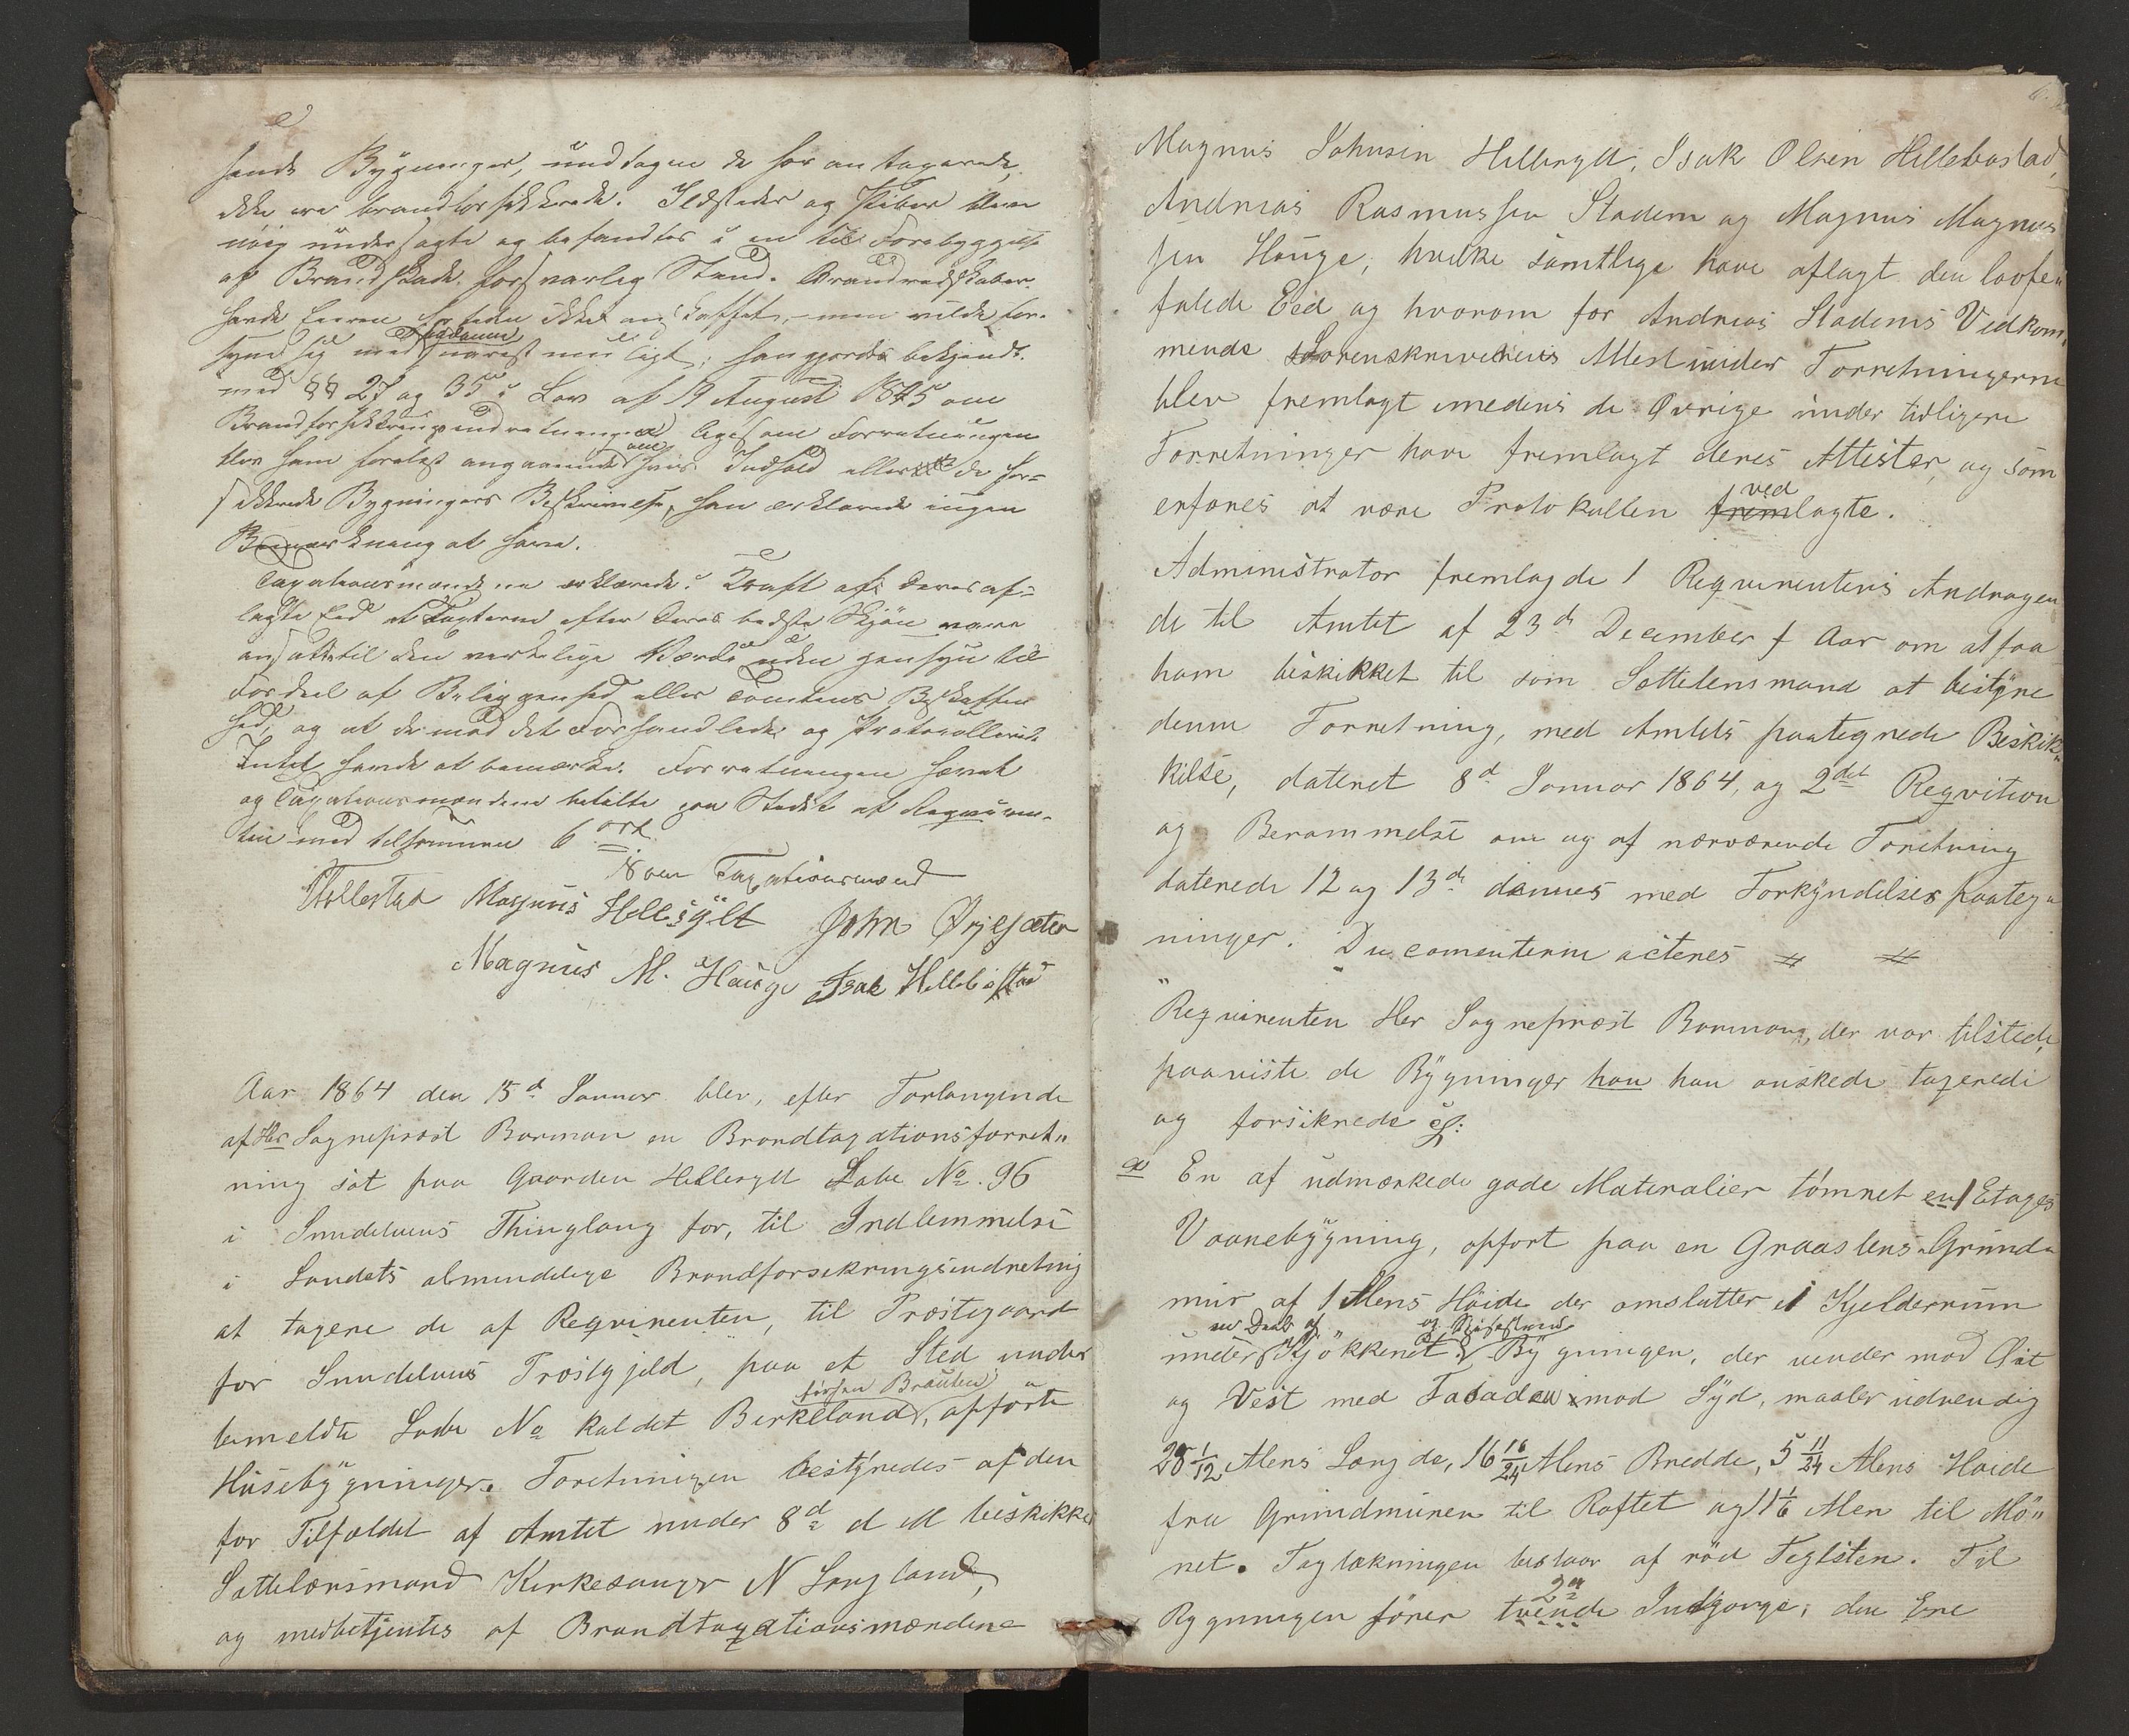 havde Bygninger, undtagen de her antagerede,
ikke ere brandforsikkrede. Ildsteder og Piber bleve
nøig undersøgte og befandtes i en til Forebyggelse
af Brandskade forsvarlig Stand. Brandredskaber
havde Eieren ikke anskaffet, men vilde for-
syne sig med saadanne snarest muligt; han gjordes bekjendt
med §§ 27 og 35 i Lov af 19 August 1845 om
Brandforsikkringsindretningen ligesom Forretningen
blev ham forelæst angaaende om hvis Indhold eller de for-
sikkrede Bygningers Beskrivelse, han erklærede ingen
Bemærkning at have.
Taxationsmændene erklærede i Kraft af deres af-
lagte Eed at Taxterne efter deres bedste Skjøn være
ansatte til den verkelige Værdi uden hensyn til
Fordeel af Beliggenhed eller Tomtens Beskaffen
hed, og at de mod det Forhandlede og Protocollerede
Intet havde at bemærke. Forretningen hævet
og Taxationsmændene betalte paa Stedet af Requiren-
ten med tilsammen 6 ort.
Som Taxationsmænd
Tillestad Magnus Hellesÿlt John Ørjesæter
Magnus M. Hauge Isak Hillebostad
Aar 1864 den 15d Januar blev, efter Forlangende
af Her Sogneprest Barman en Brandtaxationsforret"
ning sat paa Gaarden Hellesylt Løbe No. 96
i Sundelvens Thinglaug for, til Indlemmelse
i Landets almindelige Brandforsikringsindretning
at taxere de af Reqvirenten, til Præstegaard
for Sundelvens Præstgjeld, paa et Sted under
bemeldte Løbe No kaldet Birkeland, forhen Brauten opførte
Husebygninger. Foretningen bestyredes af den
for Tilfældet af Amtet under 8d d M beskikke
Sættelænsmand Kirkesanger N Langland,
og medbetjentes af Brandtaxationsmændene
Magnus Johnsen Hellesylt, Isak Olsen Hillebostad,
Andreas Rasmussen Stadem og Magnus Magnus
sen Hauge, hvilke samtlige have aflagt den lovbe"
falede Eed og hvorom for Andreas Stadems Vedkom"
mende Sorenskriverens Attest under Forretningerne
blev fremlagt imedens de Øvrige under tidligere
Forretninger have fremlagt deres Attester, og som
erfares at være Protokollen vedlagte.
Administrator fremlagde 1 Reqvirentens Andragen
de til Amtet af 23d December f Aar om at faa
ham beskikket til som Settelensmand at bestyre
denne Forretning, med Amtets paategnede Beskik"
kelse, dateret 8d Januar 1864, og 2det Reqvition
og Berammelse om og af nærværende Foretning
daterede 12 og 13d dennes med Forkyndelses paateg"
ninger. Ducomenterne acteres
Reqvirenten Her Sogneprest Barman, der var tilstede,
paaviste de Bygninger han han ønskede taxerede
og forsikrede
a En af udmærkede gode Materialier tømret en 1 Etages
Vaanebygning, opført paa en Graastens Grund"
mur af 1 Alens Høide der omslutter 1 Kjelderrum
under en Deel af Kjøkkenet og Bygningen, der vender mod Øst
og Vest med Facaden mod Syd, maaler udvendig
28 1/12 Alens Længde, 16 16/24 Alens Bredde, 5 11/24 Alens Høide
fra Grundmuren til Raftet og 11 1/6 Alen til Mø"
net. Taglækningen bestaar af rød Teglsten. Til
Bygningen fører tvende 2de Indgange, den Ene